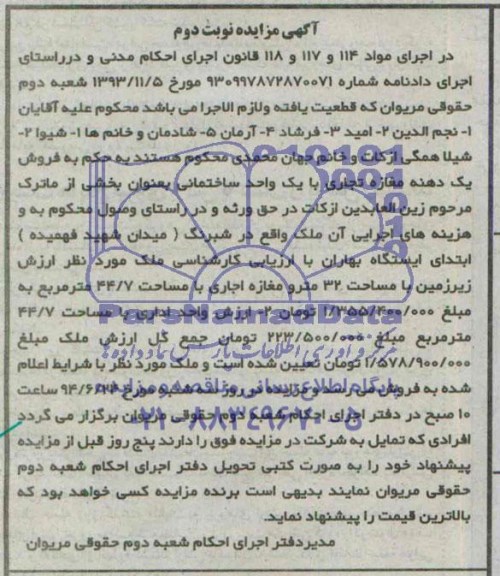 آگهی مزایده نوبت دوم
در اجرای مواد ۱۱۴ و ۱۱۷ و ۱۱۸ قانون اجرای احکام مدنی و درراستای
اجرای دادنامه شماره ۹۳۰۹۹۷۸۷۲۸۷۰۰۷۱ مورخ ۱۳۹۳/۱۱/۵ شعبه دوم
حقوقی مریوان که قطعیت یافته ولازم الاجرا می باشد محکوم علیه آقایان
۱- نجم الدین ۲- امید ۳- فرشاد ۴- آرمان ۵- شادمان و خانم ها ۱- شیوا ۲-
شیلا همگی ازکات و خانم جهان محمدی محکوم هستند به حکم به فروش
یک دهنه مغازه تجاری با یک واحد ساختمانی بعنوان بخشی از ماترک
مرحوم زین العابدین ازکات در حق ورثه و در راستای وصول محکوم به و
هزینه های اجرایی آن ملک واقع در شبرنگ ( میدان شهید فهمیده )
ابتدای ایستگاه بهاران با ارزیابی کارشناسی ملک مورد نظر ارزش
زیرزمین با مساحت ۳۲ مترو مغازه اجاری با مساحت ۴۴/۷ مترمربع به
مبلغ ۱/۳۵۵/۴۰۰/۰۰۰ تومان ۲- ارزش واحد اداری با مساحت ۴۴/۷
مترمربع مبلغ ۲۲۳/۵۰۰/۰۰۰ تومان جمع کل ارزش ملک مبلغ
۱/۵۷۸/۹۰۰/۰۰۰ تومان تعیین شده است و ملک مورد نظر با شرایط اعلام
شده به فروش می رسد و مزایده در روز سه شنبه مورخ ۹۴/۶/ ساعت
۱۰ صبح در دفتر اجرای احکام شعبه دوم حقوقی مریوان برگزار می گردد
افرادی که تمایل به شرکت در مزایده فوق را دارند پنج روز قبل از مزایده
پیشنهاد خود را به صورت کتبی تحویل دفتر اجرای احکام شعبه دوم
حقوقی مریوان نمایند بدیهی است برنده مزایده کسی خواهد بود که
بالاترین قیمت را پیشنهاد نماید.
مدیردفتر اجرای احکام شعبه دوم حقوقی مریوان
ParsNamadData
پایگاه اطلاع رسانی مناقصه و مزایده
۰۲۱-۸۸۳۴۹۶۷۰-۵